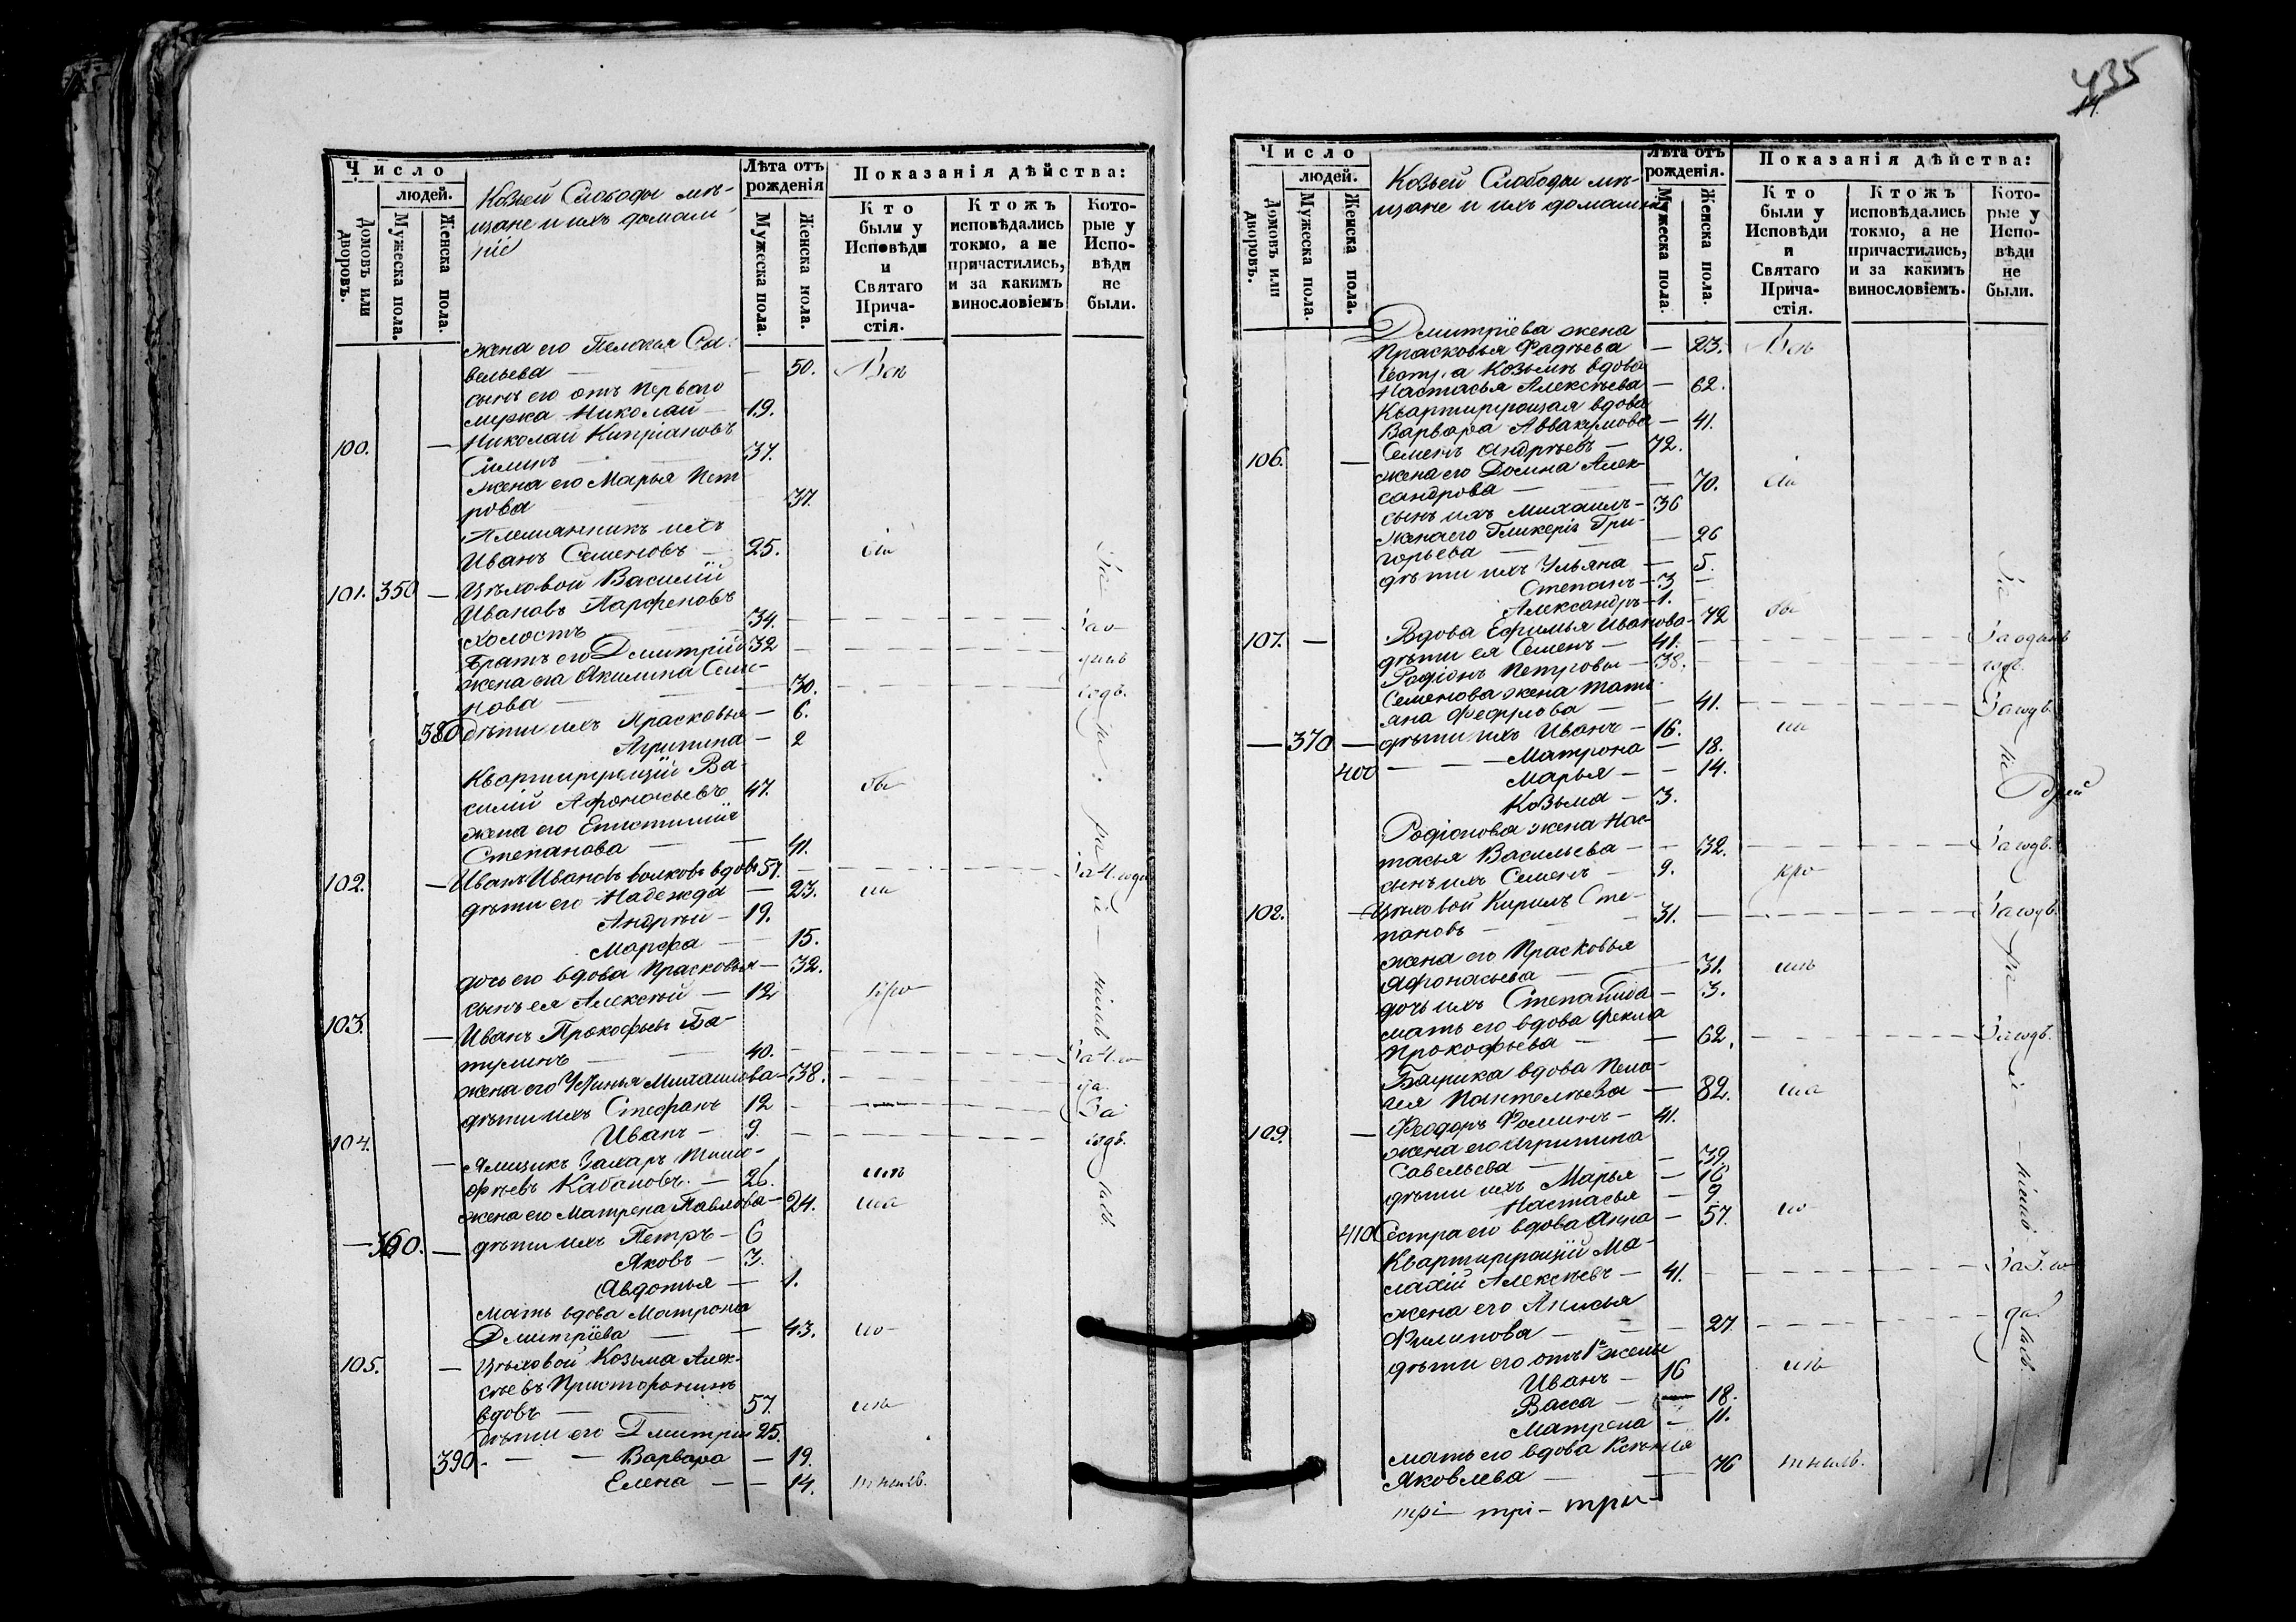 435
14.
Число
людей.
Домовъ или дворовъ.
Мужеска пола.
Женска пола.
Козьей Слободы мѣ-
щане и ихъ домаш-
ніе
Лѣта отъ рожденія
Мужеска пола.
Женска пола.
Показанія дѣйства:
Кто были у Исповѣди и Святаго Прича-стія.
Ктожъ исповѣдались токмо, а не причастились, и за какимъ винословіемъ
Кото-рые у Испо-вѣди не были.
жена его Пелагея Са-
вельева — 50. Всѣ
сынъ его отъ Перваго
мужа Николай — 19.
100. — Николай Кипріановъ
Силинъ — 37.
жена его Марья Пет-
рова 37.
Племянникъ ихъ
Иванъ Семеновъ — 25.
101. 350 — Цѣховой Василій
Ивановъ Парфеновъ
холостъ 34. За о-
Братъ его Дмитрій 32 динъ
жена его Акилина Семе-
нова — 30. годъ.
380 дѣти ихъ Прасковья — 6.
Агрипина — 2
Квартирующій Ва-
силій Афонасьевъ 47. бы
жена его Епистимия
Степанова — 41.
102. — Иванъ Ивановъ Волковъ вдовъ 57. За 4. года
дѣти его Надежда — 23.
Андрей — 19.
Марфа — 15.
дочь его вдова Прасковья — 32.
сынъ ея Алексѣй — 12
103. — Иванъ Прокофьевъ Ба-
туринъ — 40. За 4. го-
жена его Устинья Михайлова — 38. да.
дѣти ихъ Стефанъ 12 За
Иванъ — 9. годъ.
104. — Ямщикъ Захаръ Тимо-
фѣевъ Кабановъ. — 26.
жена его Матрена Павлова — 24.
— 360. — дѣти ихъ Петръ — 6
Яковъ — 3.
Авдотья — 1.
Мать вдова Матрона
Дмитріева — 43.
105. — Цѣховой Козьма Алек-
сѣевъ
вдовъ — 57.
дѣти его Дмитрій 25.
390. — — Варвара — 19.
Елена — — 14.
Число
людей.
Домовъ или дворовъ.
Мужеска пола.
Женска пола.
Козьей Слободы мѣ-
щане и ихъ домашн
Лѣта отъ рожденія.
Мужеска пола.
Женска пола.
Показанія дѣйства:
Кто были у Исповѣди и Святаго Прича-стія.
Ктожъ исповѣдались токмо, а не причастились, и за какимъ винословіемъ.
Кото-рые у Испо-вѣди не были.
Дмитріева жена
Прасковья Фадѣева — 23. Всѣ
Козьмы вдова
Настасья Алексѣева — 62.
Квартирующая вдова
Варвара Аввакумова — 41.
106. — Семенъ Андрѣевъ — 72.
жена его Домна Алек-
сандрова — 70.
сынъ ихъ Михаилъ — 36
жена его Гликерія Гри-
горьева — 26
дѣти ихъ Ульяна — 5.
Степанъ — 3 —
Александръ — 1. —
107. — Вдова Ефимья Иванова — 72 бы
дѣти ея Семенъ — 41. За одинъ
Родіонъ Петровы — 38. годъ.
Семенова жена Тать-
яна Федулова — 41. За годъ.
— 370 — дѣти ихъ Иванъ — 16.
400 — — Матрона — 18.
Марья — — 14.
Козьма — 3.
Родіонова жена Нас-
тасья Васильева — 32. За годъ.
сынъ ихъ Семенъ — 9.
108. — Цѣховой Кирилъ Сте-
пановъ — 31. За годъ.
жена его Прасковья
Афонасьева — 31.
дочь ихъ Степанида — 3.
мать его вдова Фекла
Прокофьева — 62. За годъ.
Бабушка вдова Пела-
гея Пантелѣева — 82.
109. — Феодоръ Фоминъ — 41.
жена его Агрипина
Савельева — 39.
дѣти ихъ Марья — 16
Настасья — 9
410 Сестра его вдова Анна — 57.
Квартирующій Ма-
лахій Алексѣевъ — 41. За 3. го-
жена его Анисья
Филипова — 27 да
дѣти его отъ 1й жены
Иванъ — 16
Васса — — 18.
Матрена — 11.
мать его вдова Ксенія
Яковлева — 76
три — три — три —